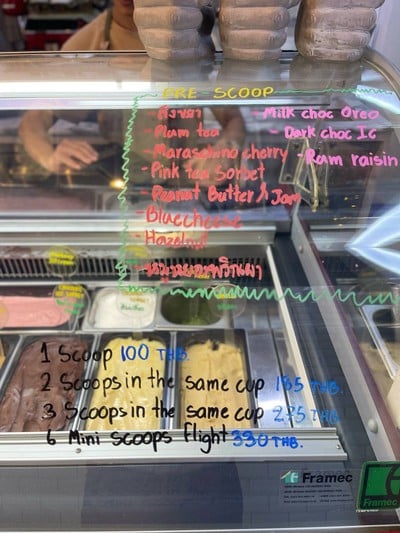 PRE SCOOP
- สังขยา
- Plum tea
- Maraschino cherry
- Pink tea Sorbet
- Peanut Butter & Jam
- Bluecheese
- Hazelnut
- Milk choc Oreo
- Dark choc IC
- Rum raisin
1 Scoop 100 THB.
2 Scoops in the same cup 185 THB.
3 Scoops in the same cup 275 THB.
6 Mini Scoops flight 330 THB.
Framec
Framec